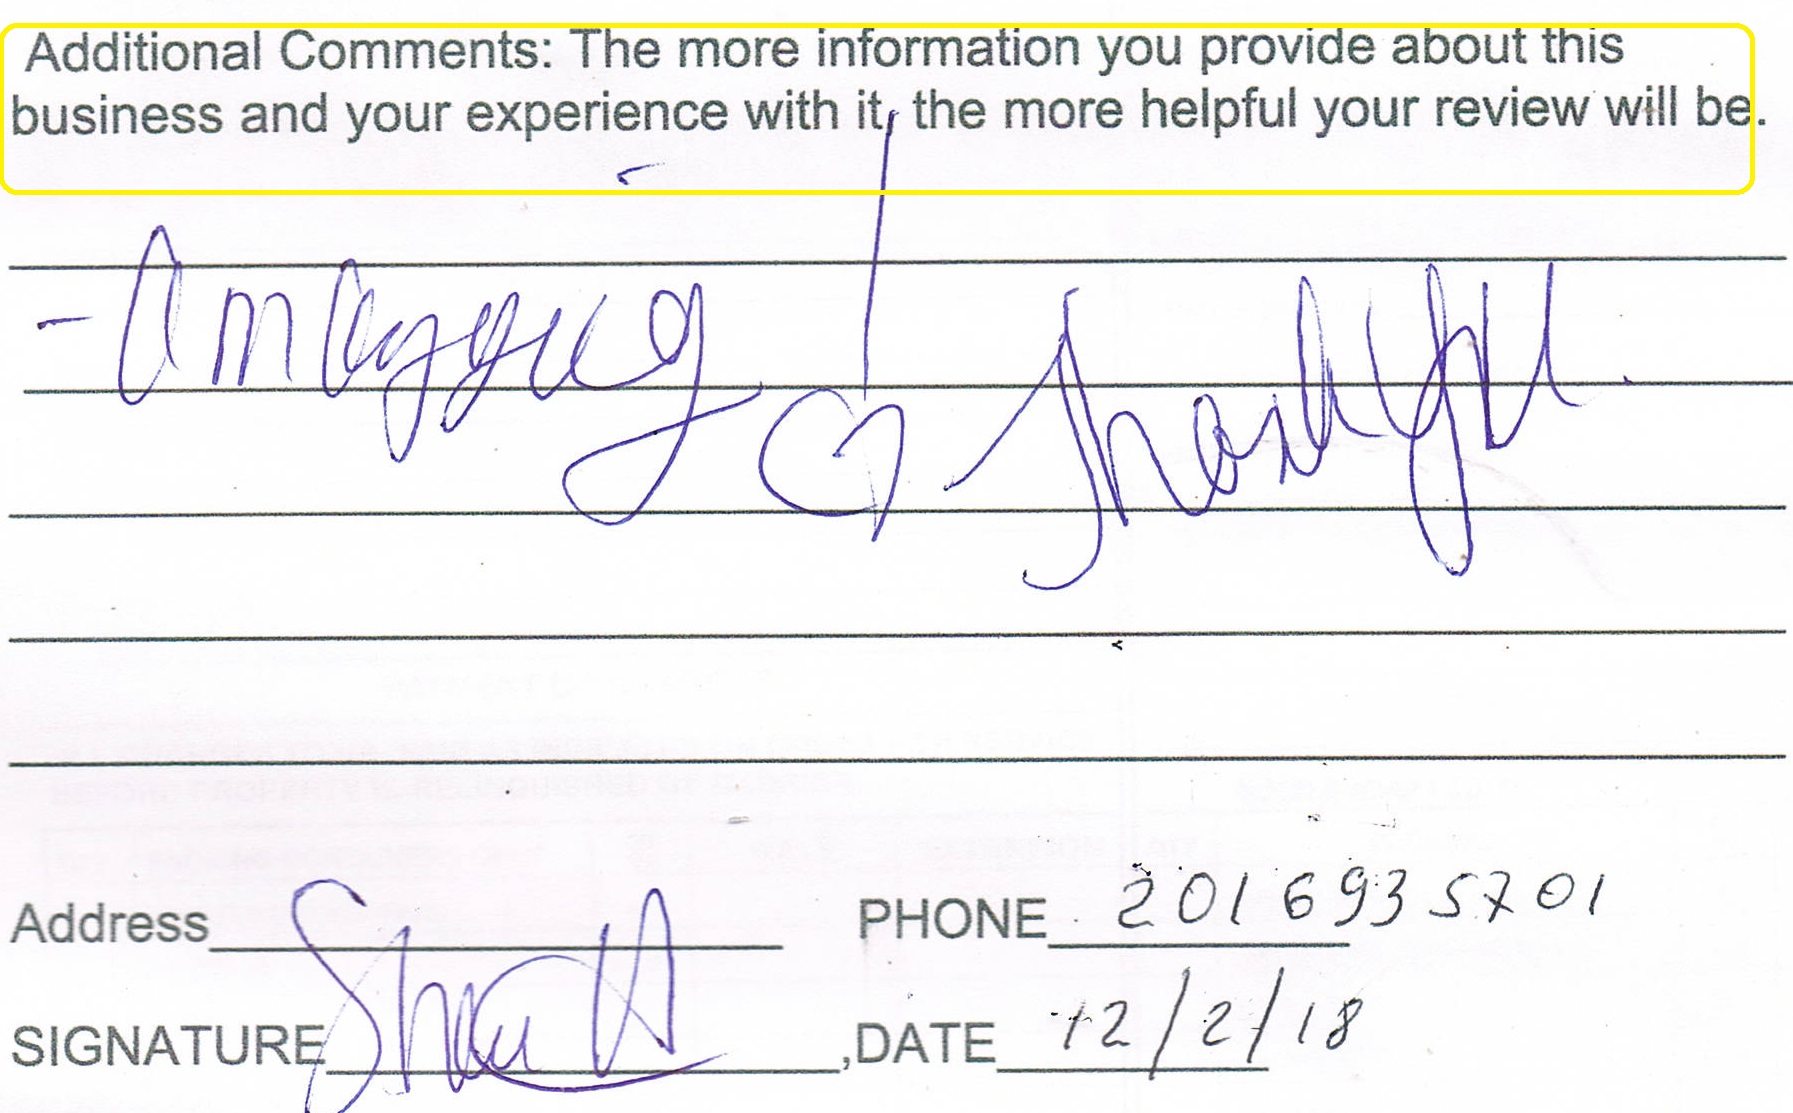 Additional Comments: The more information you provide about this
business and your experience with it, the more helpful your review will be.
- Amazzing! Thank you.
Address PHONE 201 693 5701
SIGNATURE ,DATE 12/2/18